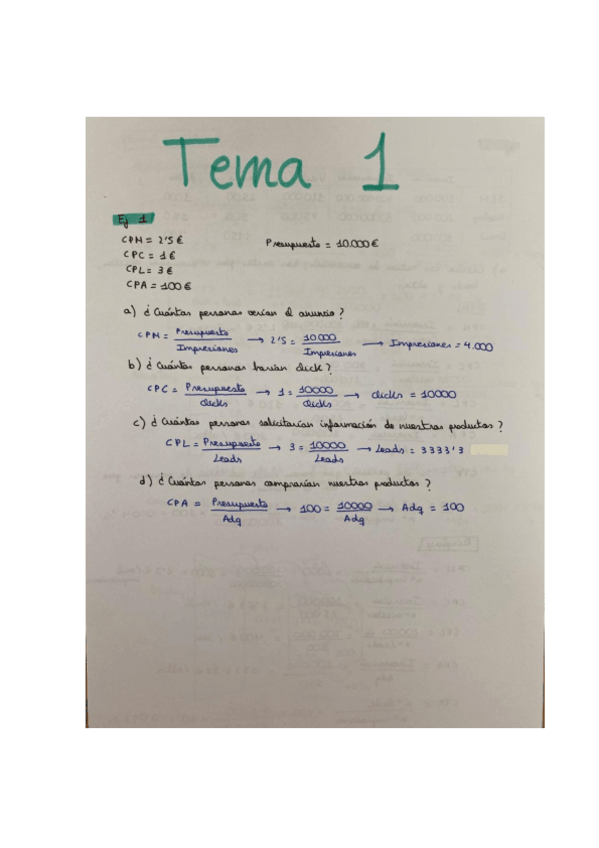 Tema 1
Ej 1
CPM = 2'5 €
Presupuesto = 10.000 €
CPC = 1 €
CPL = 3 €
CPA = 100 €
a) ¿Cuántas personas verían el anuncio?
CPM = Presupuesto / Impresiones → 2'5 = 10000 / Impresiones → Impresiones = 4.000
b) ¿Cuántas personas harían click?
CPC = Presupuesto / clicks → 1 = 10000 / clicks → clicks = 10000
c) ¿Cuántas personas solicitarían información de nuestros productos?
CPL = Presupuesto / Leads → 3 = 10000 / Leads → Leads = 3333'3
d) ¿Cuántas personas comprarían nuestros productos?
CPA = Presupuesto / Adq → 100 = 10000 / Adq → Adq = 100